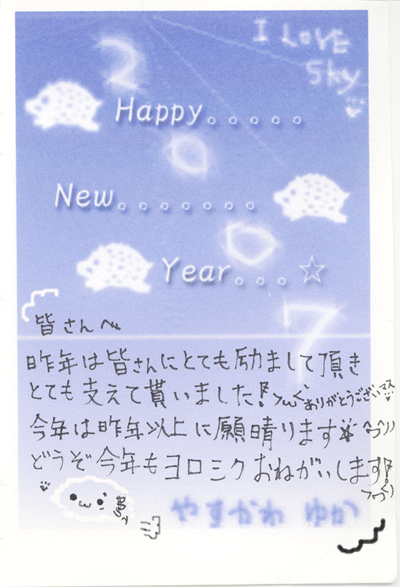 I LOVE
Sky
2
Happy。。。。。
0
New。。。。。。。
0
Year。。。☆
7
皆さんへ
昨年は皆さんにとても励まして頂き
とても支えて貰いました! ありがとうございマス
今年は昨年以上に願晴ります
どうぞ今年もヨロミクおねがいします!
やすかわ ゆか